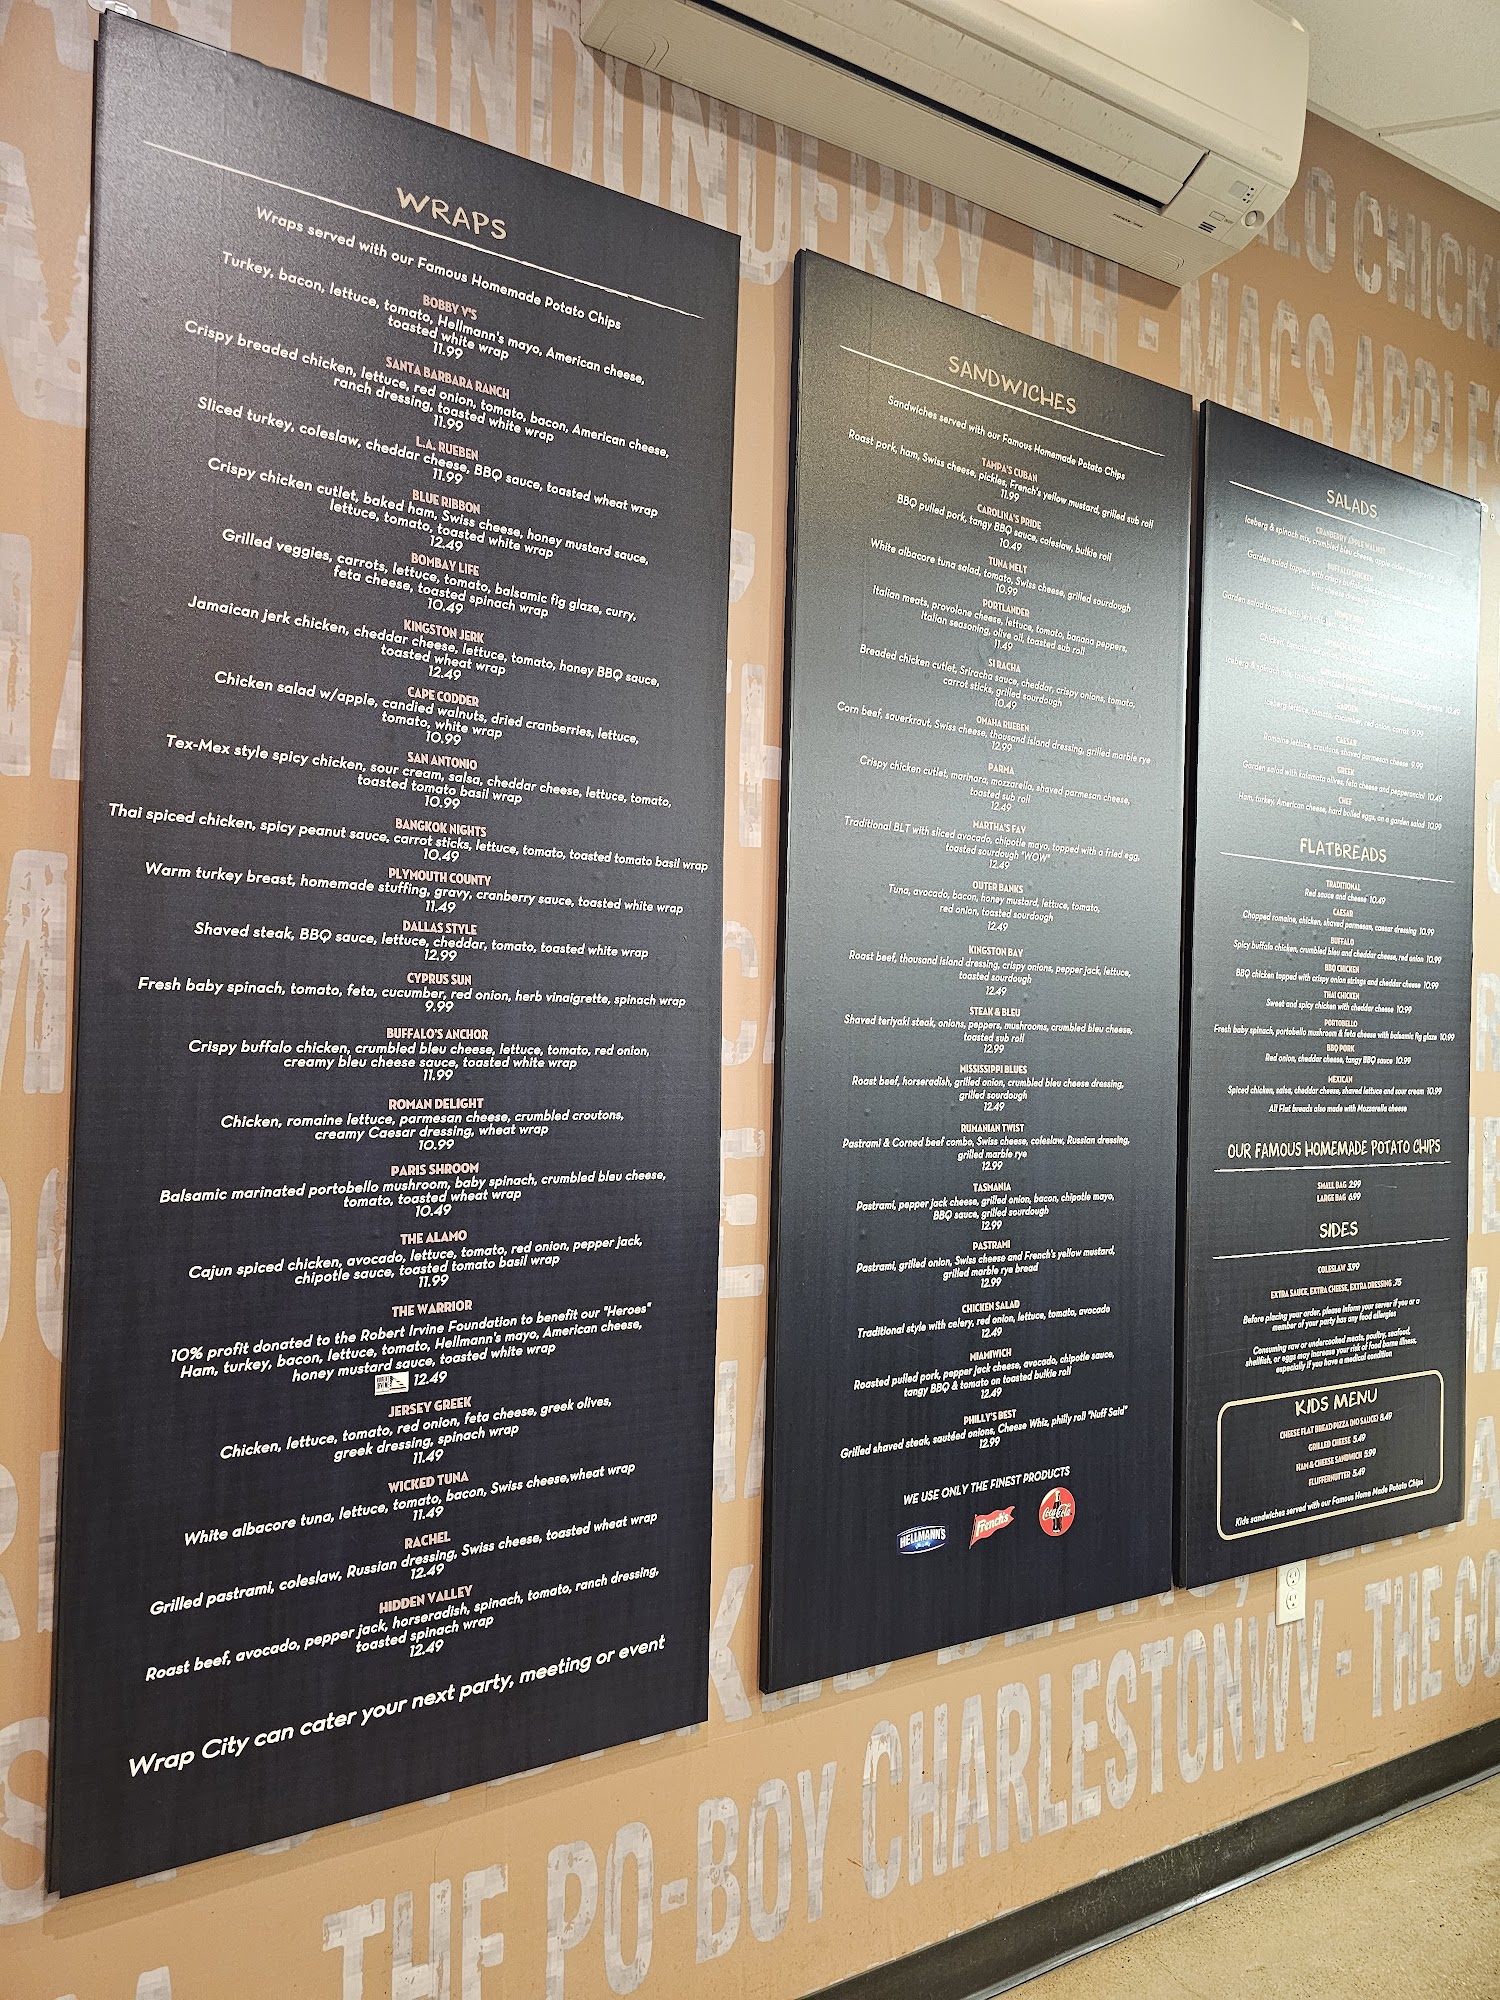 WRAPS
Wraps served with our Famous Homemade Potato Chips
BOBBY V'S
Turkey, bacon, lettuce, tomato, Hellmann's mayo, American cheese,
toasted white wrap
11.99
SANTA BARBARA RANCH
Crispy breaded chicken, lettuce, red onion, tomato, bacon, American cheese,
ranch dressing, toasted white wrap
11.99
L.A. RUEBEN
Sliced turkey, coleslaw, cheddar cheese, BBQ sauce, toasted wheat wrap
11.99
BLUE RIBBON
Crispy chicken cutlet, baked ham, Swiss cheese, honey mustard sauce,
lettuce, tomato, toasted white wrap
12.49
BOMBAY LIFE
Grilled veggies, carrots, lettuce, tomato, balsamic fig glaze, curry,
feta cheese, toasted spinach wrap
10.49
KINGSTON JERK
Jamaican jerk chicken, cheddar cheese, lettuce, tomato, honey BBQ sauce,
toasted wheat wrap
12.49
CAPE CODDER
Chicken salad w/apple, candied walnuts, dried cranberries, lettuce,
tomato, white wrap
10.99
SAN ANTONIO
Tex-Mex style spicy chicken, sour cream, salsa, cheddar cheese, lettuce, tomato,
toasted tomato basil wrap
10.99
BANGKOK NIGHTS
Thai spiced chicken, spicy peanut sauce, carrot sticks, lettuce, tomato, toasted tomato basil wrap
10.49
PLYMOUTH COUNTY
Warm turkey breast, homemade stuffing, gravy, cranberry sauce, toasted white wrap
11.49
DALLAS STYLE
Shaved steak, BBQ sauce, lettuce, cheddar, tomato, toasted white wrap
12.99
CYPRUS SUN
Fresh baby spinach, tomato, feta, cucumber, red onion, herb vinaigrette, spinach wrap
9.99
BUFFALO'S ANCHOR
Crispy buffalo chicken, crumbled bleu cheese, lettuce, tomato, red onion,
creamy bleu cheese sauce, toasted white wrap
11.99
ROMAN DELIGHT
Chicken, romaine lettuce, parmesan cheese, crumbled croutons,
creamy Caesar dressing, wheat wrap
10.99
PARIS SHROOM
Balsamic marinated portobello mushroom, baby spinach, crumbled bleu cheese,
tomato, toasted wheat wrap
10.49
THE ALAMO
Cajun spiced chicken, avocado, lettuce, tomato, red onion, pepper jack,
chipotle sauce, toasted tomato basil wrap
11.99
THE WARRIOR
10% profit donated to the Robert Irvine Foundation to benefit our "Heroes"
Ham, turkey, bacon, lettuce, tomato, Hellmann's mayo, American cheese,
honey mustard sauce, toasted white wrap
12.49
JERSEY GREEK
Chicken, lettuce, tomato, red onion, feta cheese, greek olives,
greek dressing, spinach wrap
11.49
WICKED TUNA
White albacore tuna, lettuce, tomato, bacon, Swiss cheese,wheat wrap
11.49
RACHEL
Grilled pastrami, coleslaw, Russian dressing, Swiss cheese, toasted wheat wrap
12.49
HIDDEN VALLEY
Roast beef, avocado, pepper jack, horseradish, spinach, tomato, ranch dressing,
toasted spinach wrap
12.49
Wrap City can cater your next party, meeting or event
SANDWICHES
Sandwiches served with our Famous Homemade Potato Chips
TAMPA'S CUBAN
Roast pork, ham, Swiss cheese, pickles, French's yellow mustard, grilled sub roll
11.99
CAROLINA'S PRIDE
BBQ pulled pork, tangy BBQ sauce, coleslaw, bulkie roll
10.49
TUNA MELT
White albacore tuna salad, tomato, Swiss cheese, grilled sourdough
10.99
PORTLANDER
Italian meats, provolone cheese, lettuce, tomato, banana peppers,
Italian seasoning, olive oil, toasted sub roll
11.49
SI RACHA
Breaded chicken cutlet, Sriracha sauce, cheddar, crispy onions, tomato,
carrot sticks, grilled sourdough
10.49
OMAHA RUEBEN
Corn beef, sauerkraut, Swiss cheese, thousand island dressing, grilled marble rye
12.99
PARMA
Crispy chicken cutlet, marinara, mozzarella, shaved parmesan cheese,
toasted sub roll
12.49
MARTHA'S FAV
Traditional BLT with sliced avocado, chipotle mayo, topped with a fried egg,
toasted sourdough "WOW"
12.49
OUTER BANKS
Tuna, avocado, bacon, honey mustard, lettuce, tomato,
red onion, toasted sourdough
12.49
KINGSTON BAY
Roast beef, thousand island dressing, crispy onions, pepper jack, lettuce,
toasted sourdough
12.49
STEAK & BLEU
Shaved teriyaki steak, onions, peppers, mushrooms, crumbled bleu cheese,
toasted sub roll
12.99
MISSISSIPPI BLUES
Roast beef, horseradish, grilled onion, crumbled bleu cheese dressing,
grilled sourdough
12.49
RUMANIAN TWIST
Pastrami & Corned beef combo, Swiss cheese, coleslaw, Russian dressing,
grilled marble rye
12.99
TASMANIA
Pastrami, pepper jack cheese, grilled onion, bacon, chipotle mayo,
BBQ sauce, grilled sourdough
12.99
PASTRAMI
Pastrami, grilled onion, Swiss cheese and French's yellow mustard,
grilled marble rye bread
12.99
CHICKEN SALAD
Traditional style with celery, red onion, lettuce, tomato, avocado
12.49
MIAMIWICH
Roasted pulled pork, pepper jack cheese, avocado, chipotle sauce,
tangy BBQ & tomato on toasted bulkie roll
12.49
PHILLY'S BEST
Grilled shaved steak, sautéed onions, Cheese Whiz, philly roll "Nuff Said"
12.99
WE USE ONLY THE FINEST PRODUCTS
HELLMANN'S
French's
Coca-Cola
SALADS
CRANBERRY APPLE WALNUT
Iceberg & spinach mix, crumbled bleu cheese, apple cider
BUFFALO CHICKEN
Garden salad topped with crispy buffalo chicken,
bleu cheese
Garden salad topped with jerk chicken,
Iceberg & spinach mix,
10.49
GARDEN
Iceberg lettuce, tomato, cucumber, red onion, carrot 9.99
CAESAR
Romaine lettuce, croutons, shaved parmesan cheese 9.99
GREEK
Garden salad with kalamata olives, feta cheese and pepperoncini 10.49
CHEF
Ham, turkey, American cheese, hard boiled eggs, on a garden salad 10.99
FLATBREADS
TRADITIONAL
Red sauce and cheese 10.49
CAESAR
Chopped romaine, chicken, shaved parmesan, caesar dressing 10.99
BUFFALO
Spicy buffalo chicken, crumbled bleu and cheddar cheese, red onion 10.99
BBQ CHICKEN
BBQ chicken topped with crispy onion strings and cheddar cheese 10.99
THAI CHICKEN
Sweet and spicy chicken with cheddar cheese 10.99
PORTOBELLO
Fresh baby spinach, portobello mushroom & feta cheese with balsamic fig glaze 10.99
BBQ PORK
Red onion, cheddar cheese, tangy BBQ sauce 10.99
MEXICAN
Spiced chicken, salsa, cheddar cheese, shaved lettuce and sour cream 10.99
All Flat breads also made with Mozzarella cheese
OUR FAMOUS HOMEMADE POTATO CHIPS
SMALL BAG 2.99
LARGE BAG 6.99
SIDES
COLESLAW 3.99
EXTRA SAUCE, EXTRA CHEESE, EXTRA DRESSING .75
Before placing your order, please inform your server if you or a
member of your party has any food allergies
Consuming raw or undercooked meats, poultry, seafood,
shellfish, or eggs may increase your risk of food borne illness,
especially if you have a medical condition
KIDS MENU
CHEESE FLAT BREAD PIZZA (NO SAUCE) 8.49
GRILLED CHEESE 5.49
HAM & CHEESE SANDWICH 5.99
FLUFFERNUTTER 5.49
Kids sandwiches served with our Famous Home Made Potato Chips
LONDONDERRY, NH - MACS APPLES
CHICK
THE PO-BOY CHARLESTON WV - THE GO